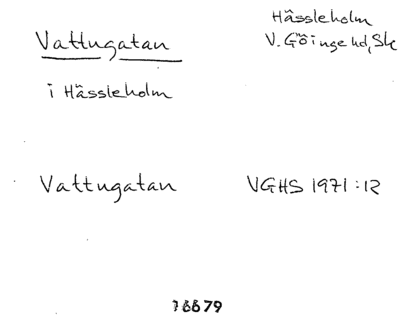 Vattugatan
Hässleholm
V. Göinge hd, Sk
i Hässleholm
Vattugatan
VGHS 1971:12
16679